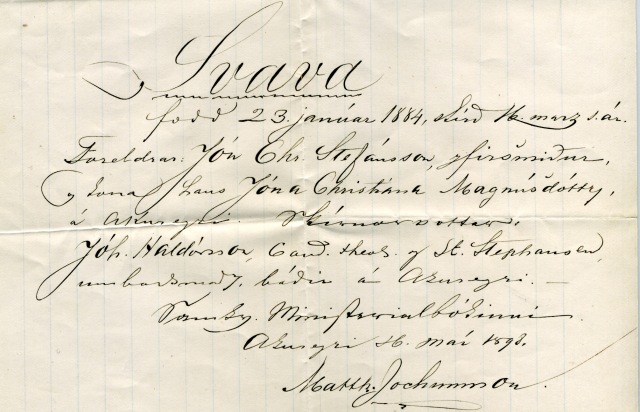 Svava
fædd 23. janúar 1884, skírð 16. marz s. ár.
Foreldrar: Jón Chr. Stefánsson, yfirsmiður,
og kona hans Jóna Christiana Magnúsdóttir,
á Akureyri. Skírnarvottar:
Jóh. Haldórsson, Cand. theol. og St. Stephensen,
umboðsmaðr, báðir á Akureyri. —
Samkv. Ministerialbókinni
Akureyri 16. maí 1898.
Matth. Jochumsson.